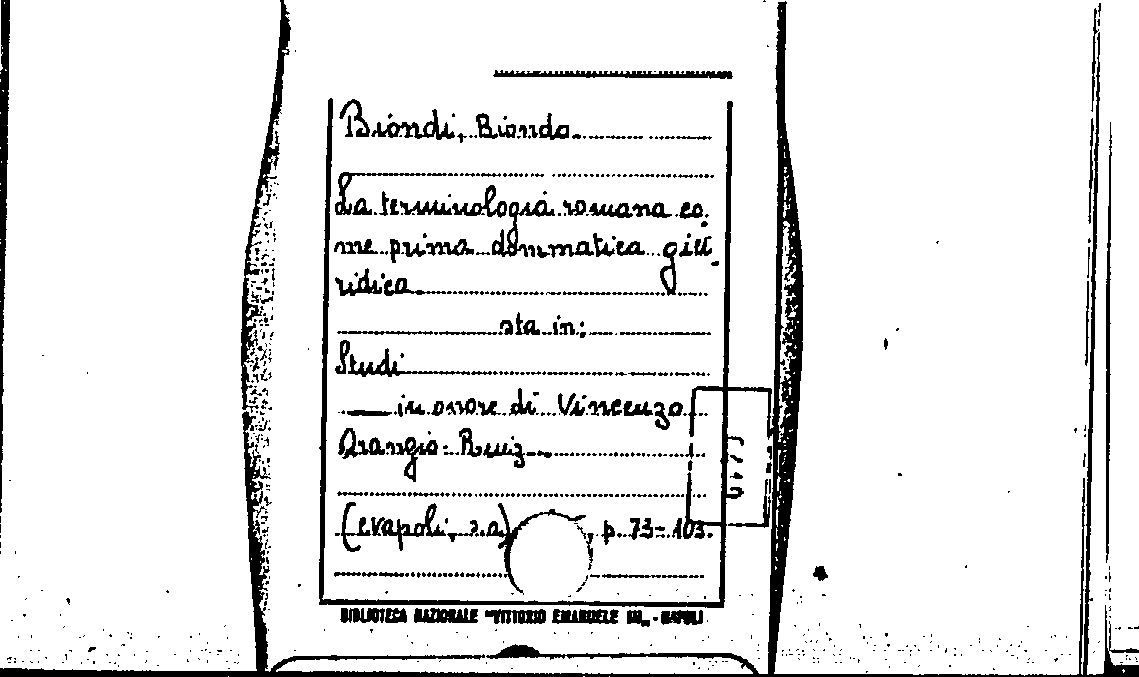 Biondi, Biondo.
La terminologia romana co.
me prima dommatica giu.
ridica.
sta in:
Studi
— in onore di Vincenzo
Arangio-Ruiz.
(Napoli, s.a.) , p. 73-103.
BIBLIOTECA NAZIONALE "VITTORIO EMANUELE III„ - NAPOLI